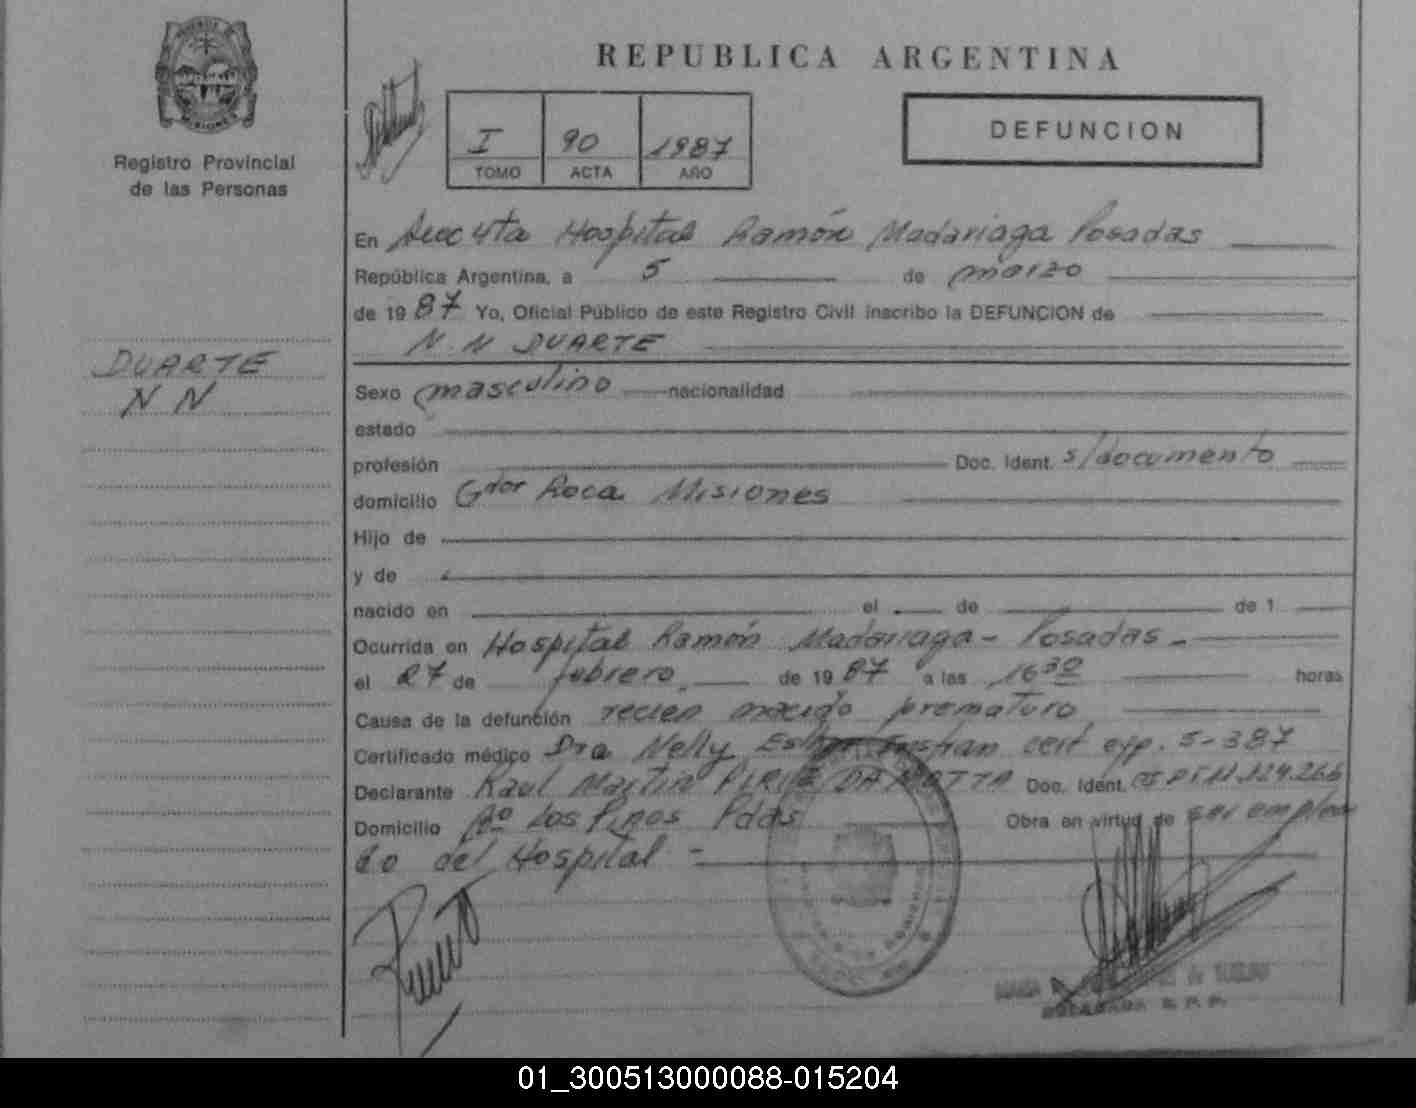 REPUBLICA ARGENTINA
MISIONES
Registro Provincial
de las Personas
I 90 1987
TOMO ACTA AÑO
DEFUNCION
En Secc 4ta Hospital Ramón Madariaga Posadas
República Argentina, a 5 de marzo
de 1987 Yo, Oficial Público de este Registro Civil inscribo la DEFUNCION de
N. N DUARTE
DUARTE
N N
Sexo masculino nacionalidad
estado
profesión Doc. Ident. s/documento
domicilio Gdor Roca Misiones
Hijo de
y de
nacido en el de de 1
Ocurrida en Hospital Ramón Madariaga - Posadas -
el 27 de febrero de 1987 a las 16 30 horas
Causa de la defunción recien nacido prematuro
Certificado médico Dra Nelly Esther cert exp. 5-387
Declarante Raul Martin DA MOTTA Doc. Ident.
Domicilio Bº Los Pinos Pdas Obra en virtud de ser emplea
do del Hospital -
01_300513000088-015204